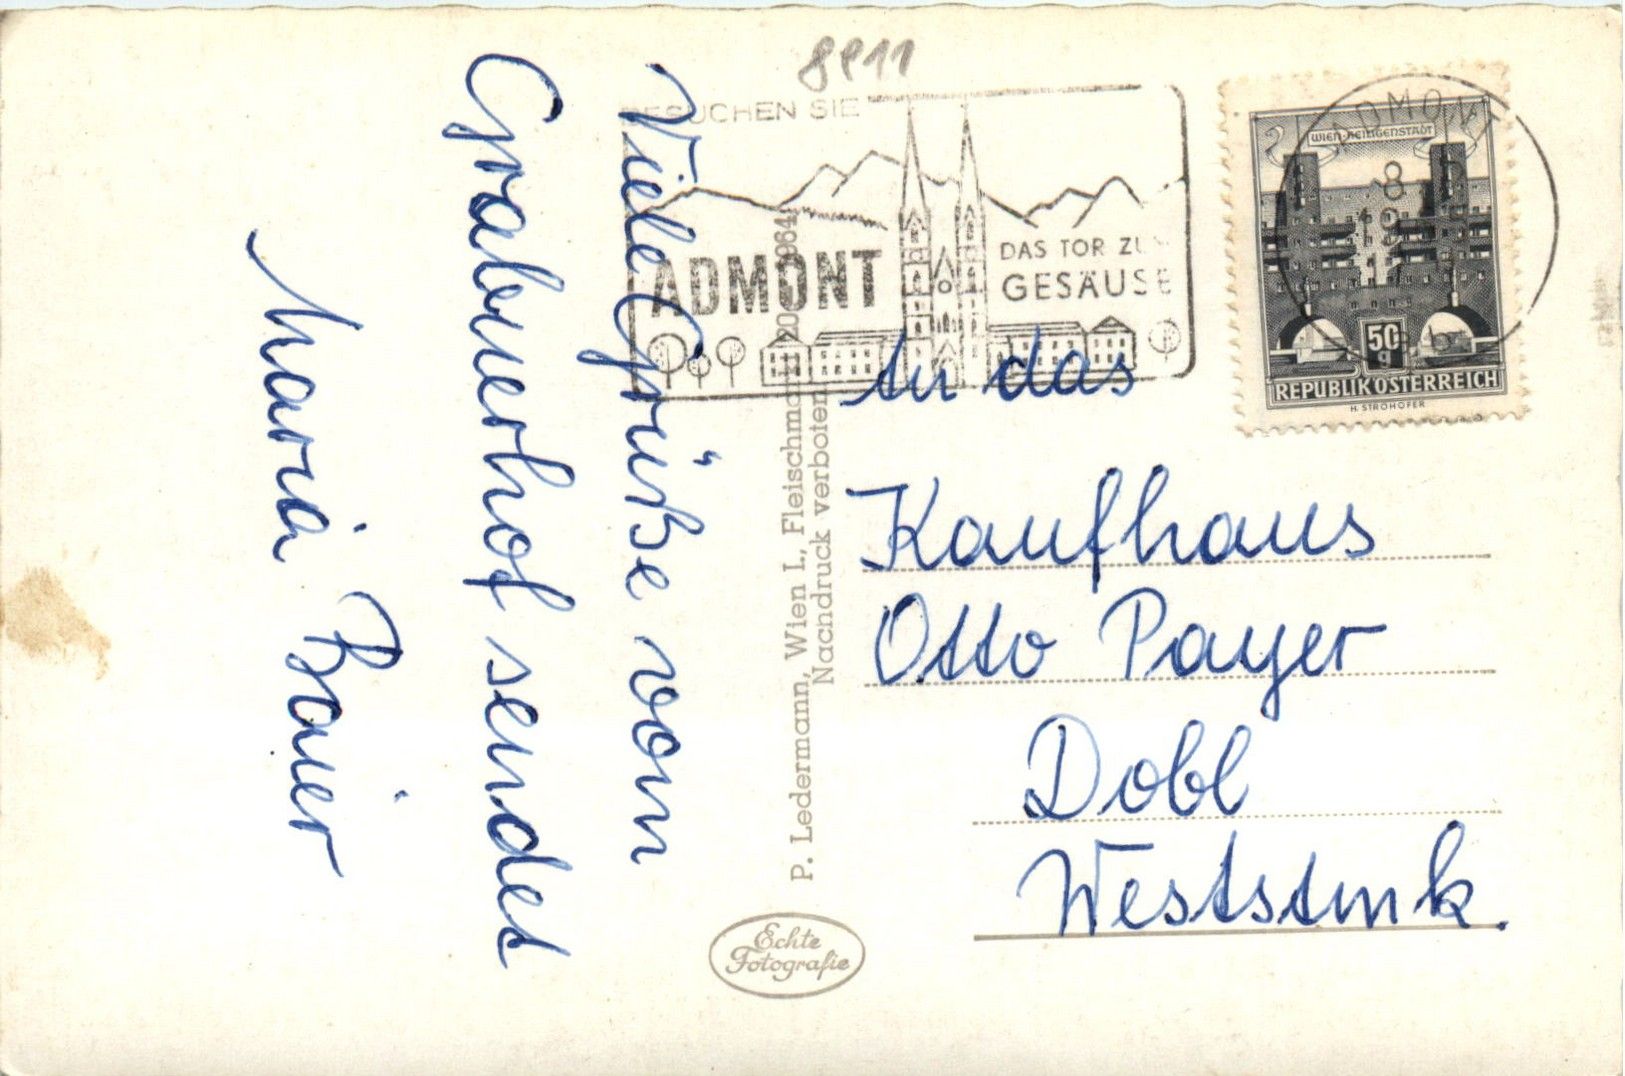 8911
BESUCHEN SIE
ADMONT
DAS TOR ZUM
GESÄUSE
ADMONT
WIEN-HEILIGENSTADT
50
g
REPUBLIK ÖSTERREICH
H. STROHOFER
Viele Grüße vom
Grabnerhof sendet
Maria Baier
P. Ledermann, Wien I., Fleischmarkt 20
Nachdruck verboten
An das
Kaufhaus
Otto Payer
Dobl
Weststmk.
Echte
Fotografie